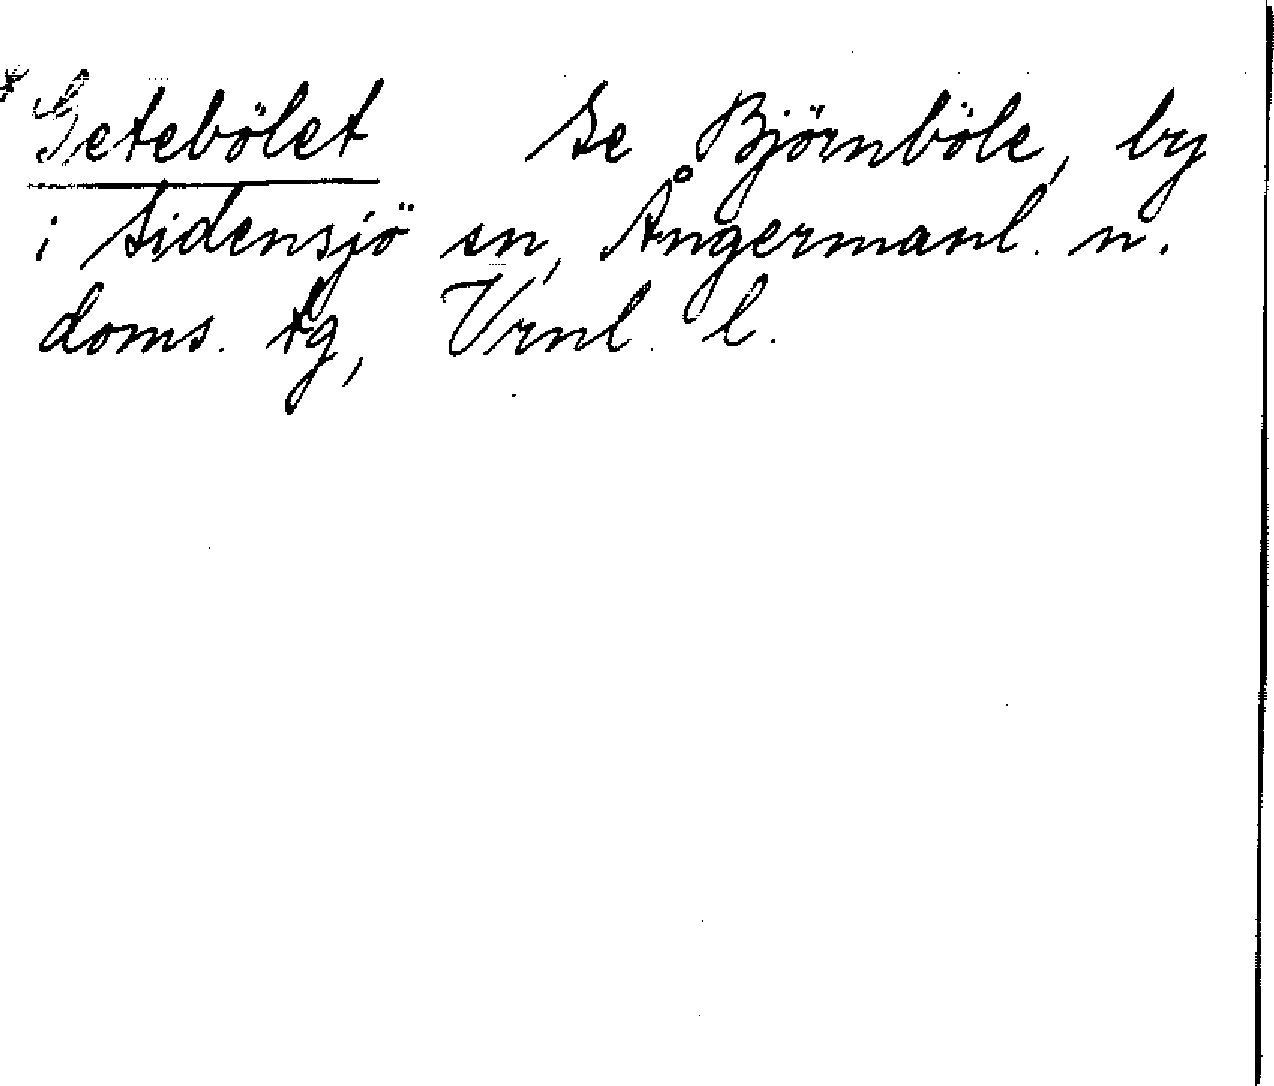 *Getebölet Se Björnböle, by
i Sidensjö sn, Ångermanl. n.
doms. tg, Vrnl. l.